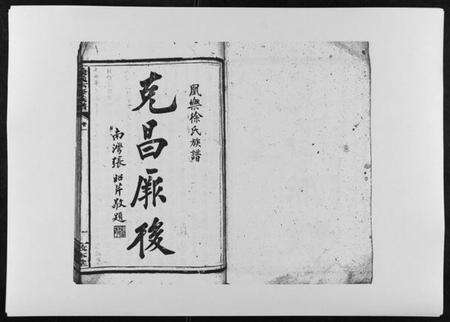 鳳樂徐氏族譜
克昌厥後
南灣張昭芹敬題